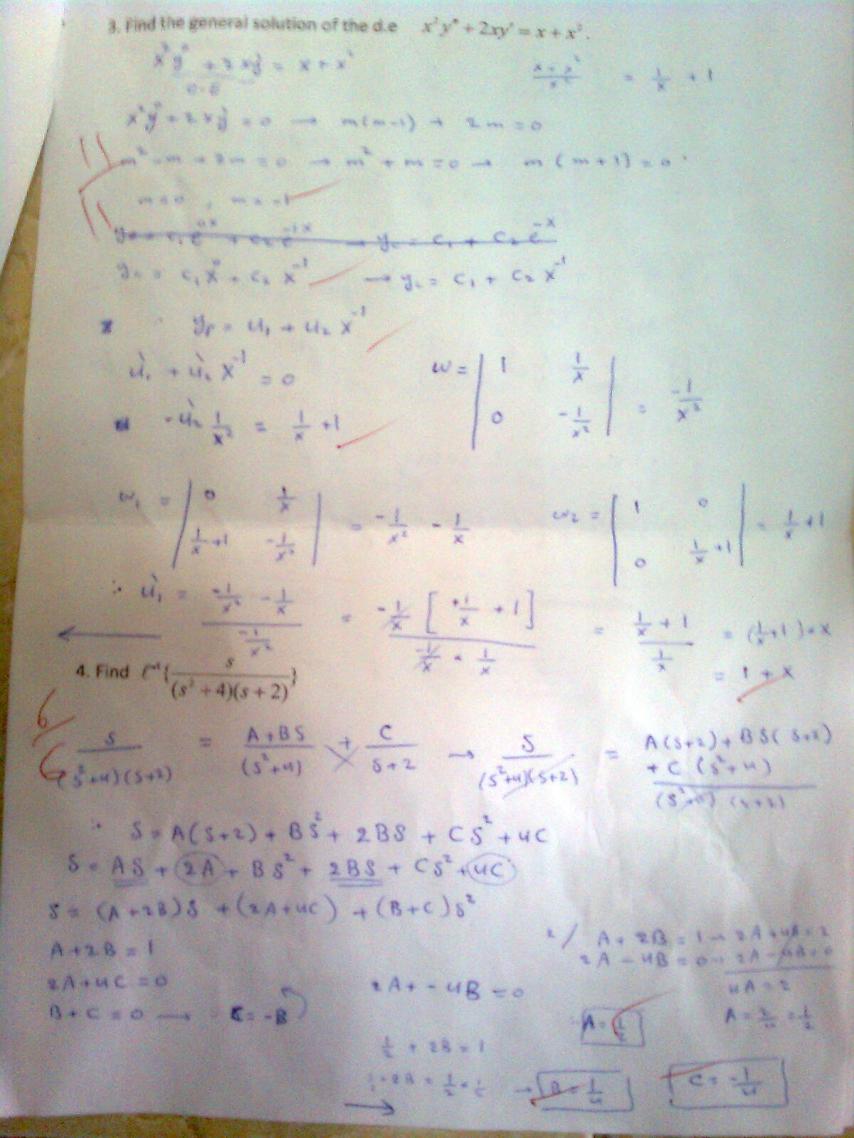 3. Find the general solution of the d.e x²y″ + 2xy′ = x + x².
x²y″ + 2xy′ = x + x²
(x + x²)/x² = 1/x + 1
x²y″ + 2xy′ = 0 → m(m-1) + 2m = 0
m² - m + 2m = 0 → m² + m = 0 → m(m+1) = 0
11/11
m = 0 , m = -1
yc = c₁e^{0x} + c₂e^{-1x} → yc = c₁ + c₂e^{-x}
yc = c₁x⁰ + c₂x⁻¹ → yc = c₁ + c₂x⁻¹
yp = u₁ + u₂x⁻¹
ù₁ + ù₂x⁻¹ = 0
w = | 1 1/x ; 0 -1/x² | = -1/x²
-ù₂ 1/x² = 1/x + 1
w₁ = | 0 1/x ; 1/x+1 -1/x² | = -1/x² - 1/x
w₂ = | 1 0 ; 0 1/x+1 | = 1/x + 1
∴ ù₁ = (-1/x² - 1/x)/(-1/x²) = (-1/x [+1/x + 1])/(-1/x · 1/x) = (1/x + 1)/(1/x) = (1/x + 1) · x
= 1 + x
4. Find ℓ⁻¹{s/((s²+4)(s+2))}
6/6
S/((S²+4)(S+2)) = (A+BS)/(S²+4) + C/(S+2) → S/((S²+4)(S+2)) = (A(S+2) + BS(S+2) + C(S²+4))/((S²+4)(S+2))
∴ S = A(S+2) + BS² + 2BS + CS² + 4C
S = AS + 2A + BS² + 2BS + CS² + 4C
S = (A+2B)S + (2A+4C) + (B+C)S²
A+2B = 1
2A+4C = 0
B+C = 0 → C = -B
2A + -4B = 0
2/ A + 2B = 1 → 2A+4B = 2
2A - 4B = 0 → 2A - 4B = 0
4A = 2
A = 2/4 = 1/2
A = 1/2
1/2 + 2B = 1
→ B = 1/4
C = -1/4